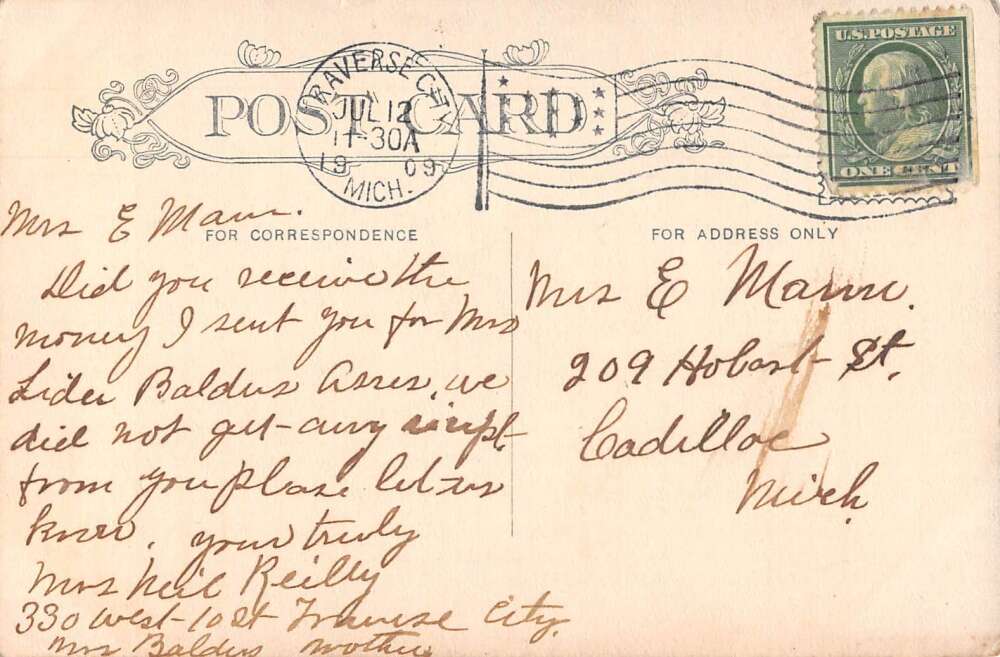 POST CARD
TRAVERSE CITY
JUL 12
11-30A
19 09
MICH.
U.S. POSTAGE
ONE CENT
FOR CORRESPONDENCE
FOR ADDRESS ONLY
Mrs E Mann.
Did you receive the
money I sent you for Mrs
Lider Baldus Asses, we
did not get any
from you please let us
know. your truly
Mrs Neil Reilly
330 West 10 St Traverse City.
Mrs Baldus mother
Mrs E Mann.
209 Hobart St.
Cadillac
Mich